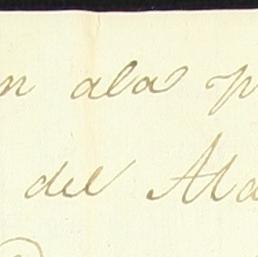 n ala p
del Ma